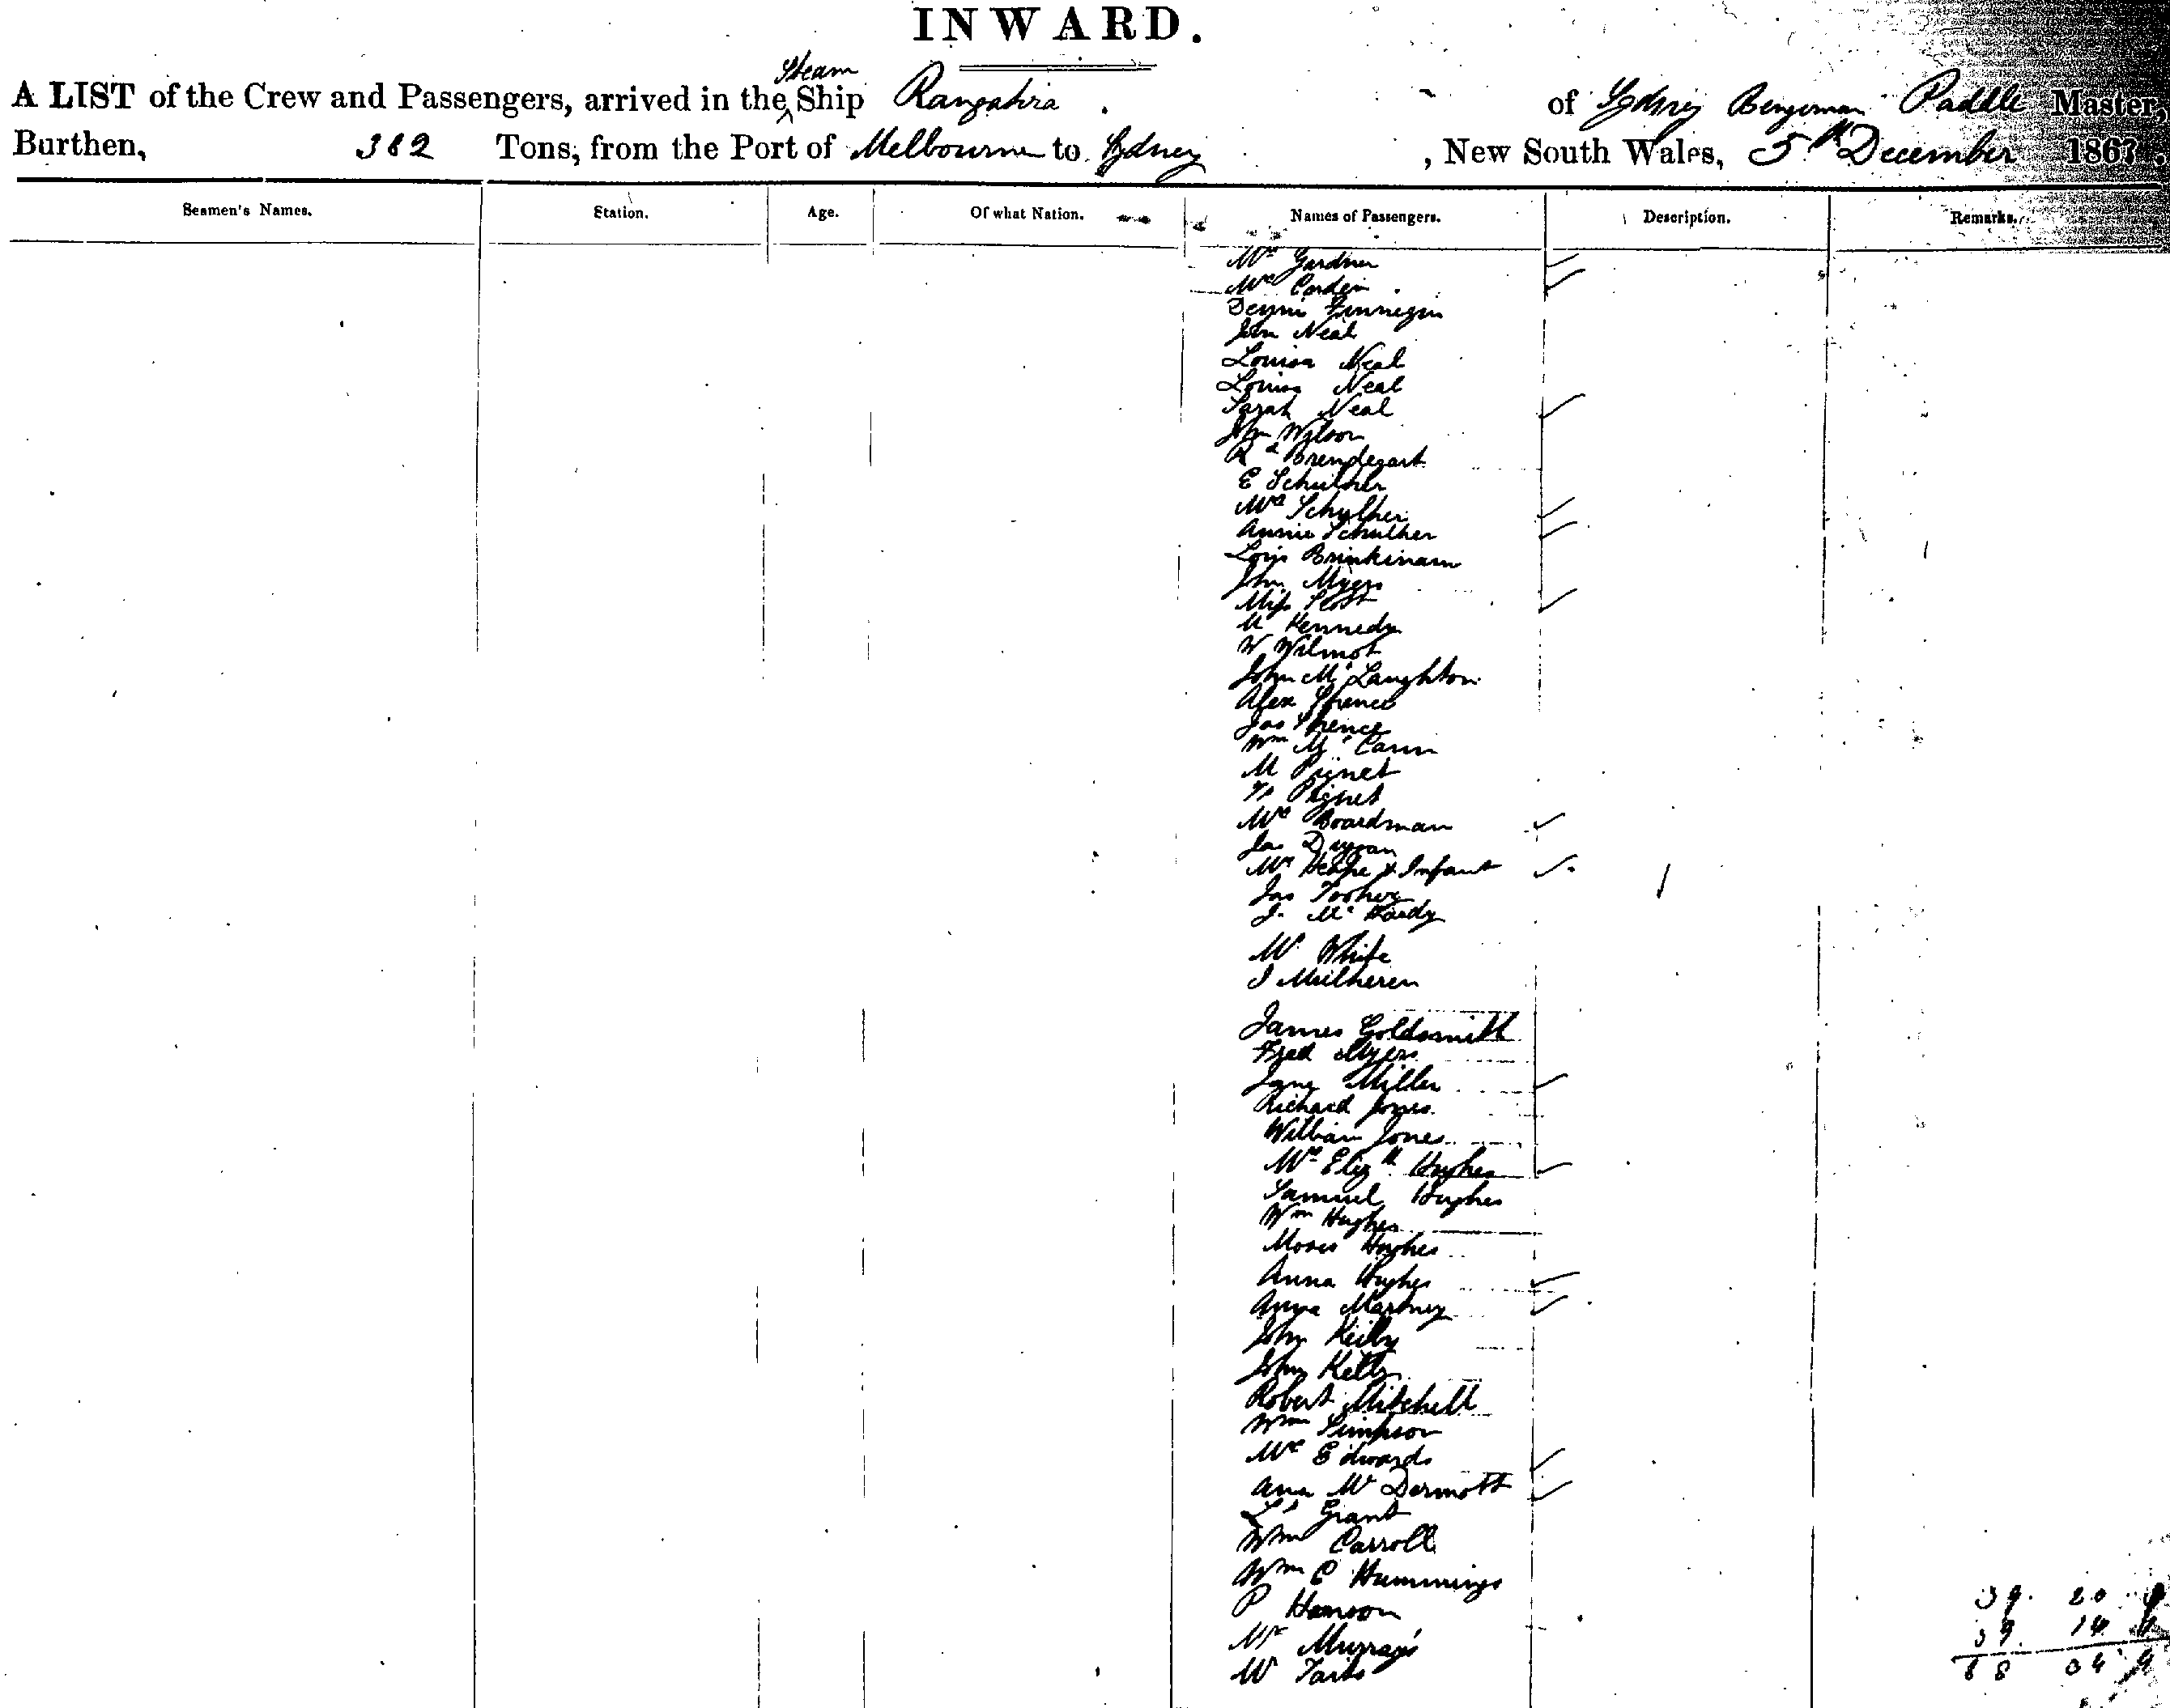 INWARD.
Steam
A LIST of the Crew and Passengers, arrived in the Ship Rangatira of Sydney Benjamin Paddle Master,
Burthen, 382 Tons, from the Port of Melbourne to Sydney, New South Wales, 5th December 1867.
Seamen's Names. Station. Age. Of what Nation. Names of Passengers. Description. Remarks.
Mrs Gardner
Mrs
Finnegin
Neal
Louisa Neal
Louisa Neal
Sarah Neal
Jhn Wilson
E
Mrs
Annie Schulher
Louis
Jhn Myers
Miss Scott
M Kennedy
W Wilmot
John Mc Laughton
Alex Spence
Jas Spence
Wm Mc Cann
M Pignet
Pignet
Mrs Boardman
Jas Duggan
Mrs & Infant
Jas Toohey
J. Mc Hardy
Mr White
J Mulheren
James Goldsmith
Fred Myers
Jane Miller
Richard Jones
William Jones
Mrs Elizth Hughes
Samuel Hughes
Wm Hughes
Moses Hughes
Anna Hughes
Anna
John Keily
John Kelly
Robert Mitchell
Wm Simpson
Mrs Edwards
Ann Mc Dermott
Grant
Wm Carroll
Wm C Hummings
P
Mr Murray